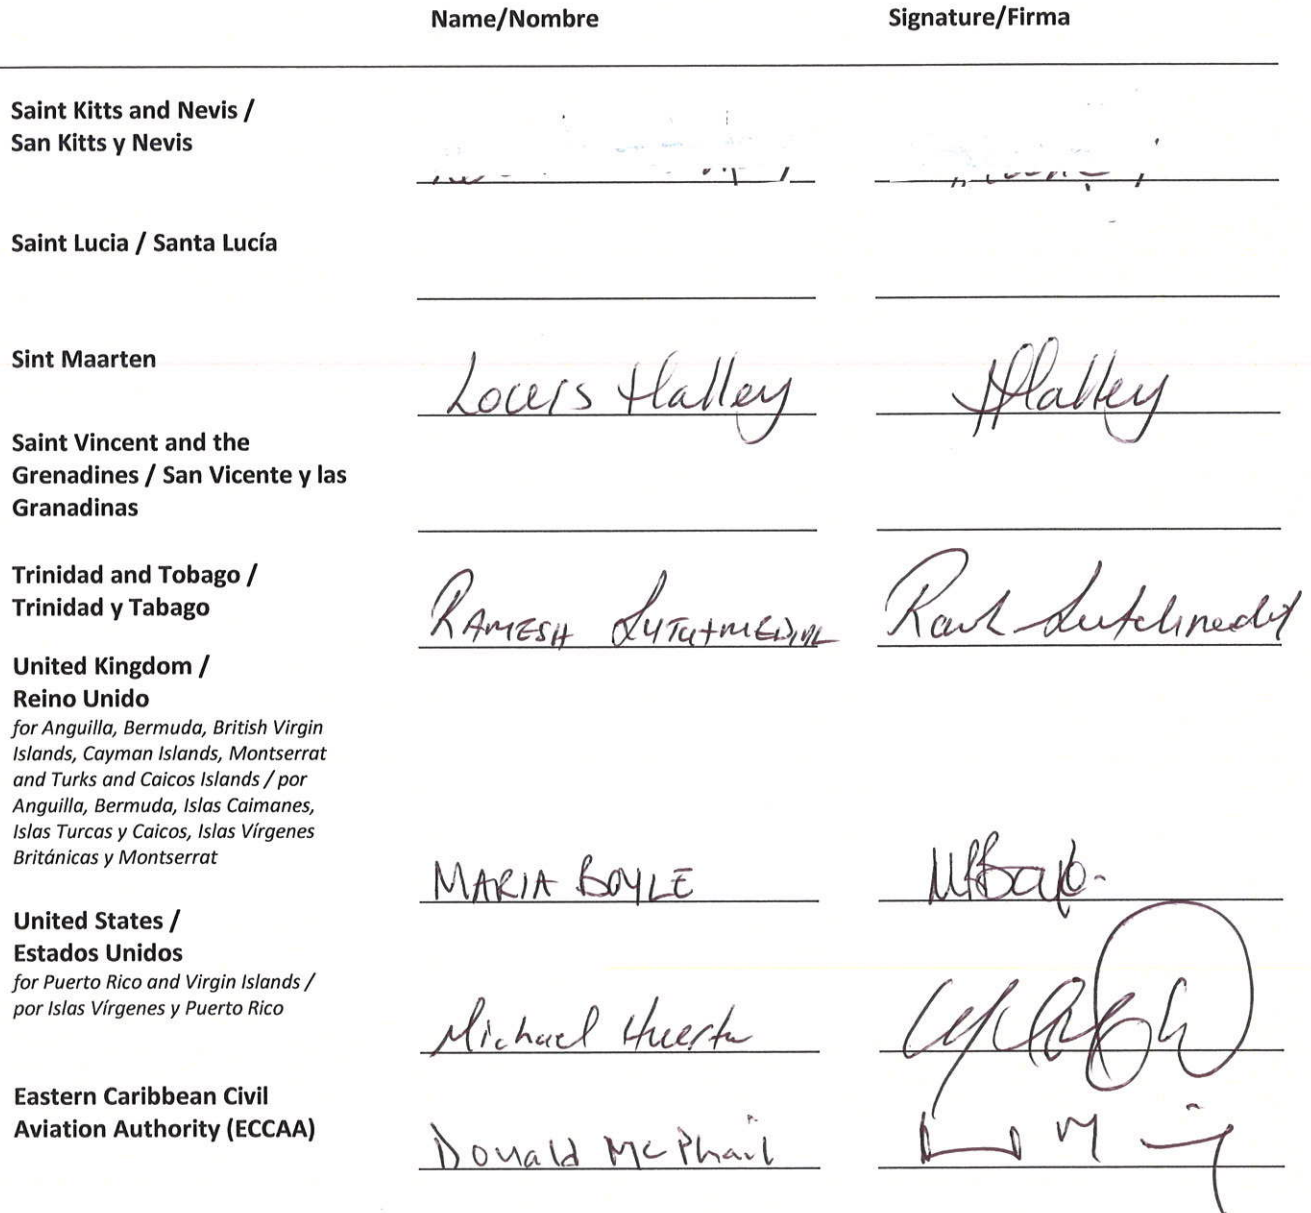 Name/Nombre Signature/Firma
Saint Kitts and Nevis /
San Kitts y Nevis
Saint Lucia / Santa Lucía
Sint Maarten
Louis Halley Halley
Saint Vincent and the
Grenadines / San Vicente y las
Granadinas
Trinidad and Tobago /
Trinidad y Tabago
RAMESH
United Kingdom /
Reino Unido
for Anguilla, Bermuda, British Virgin
Islands, Cayman Islands, Montserrat
and Turks and Caicos Islands / por
Anguilla, Bermuda, Islas Caimanes,
Islas Turcas y Caicos, Islas Vírgenes
Británicas y Montserrat
MARIA BOYLE
United States /
Estados Unidos
for Puerto Rico and Virgin Islands /
por Islas Vírgenes y Puerto Rico
Michael Huerta
Eastern Caribbean Civil
Aviation Authority (ECCAA)
Donald McPhail